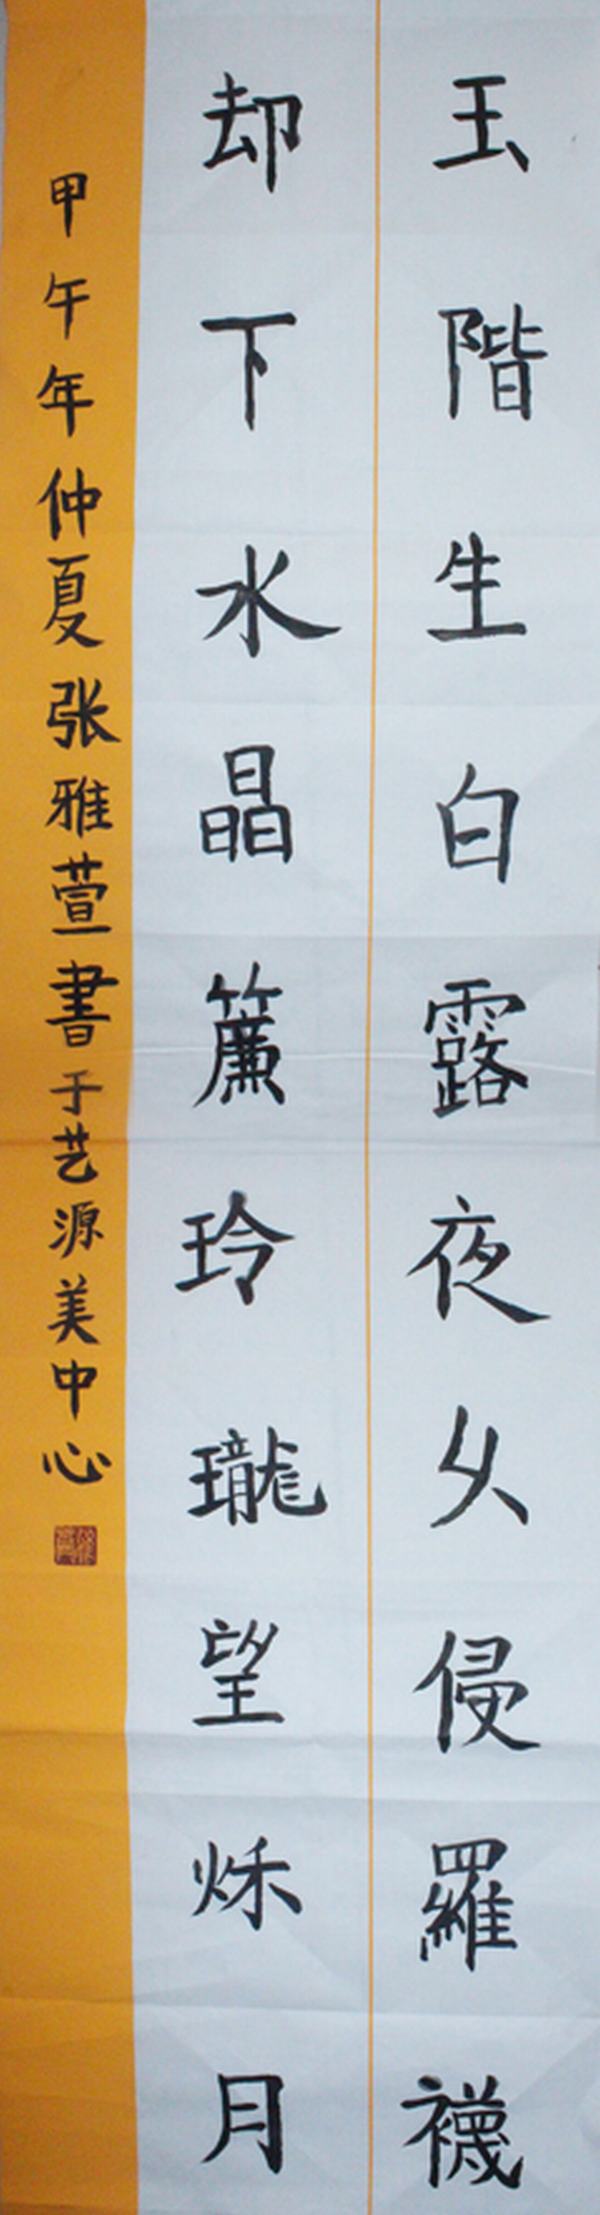 玉階生白露夜久侵羅襪
却下水晶簾玲瓏望秌月
甲午年仲夏张雅萱書于艺源美中心